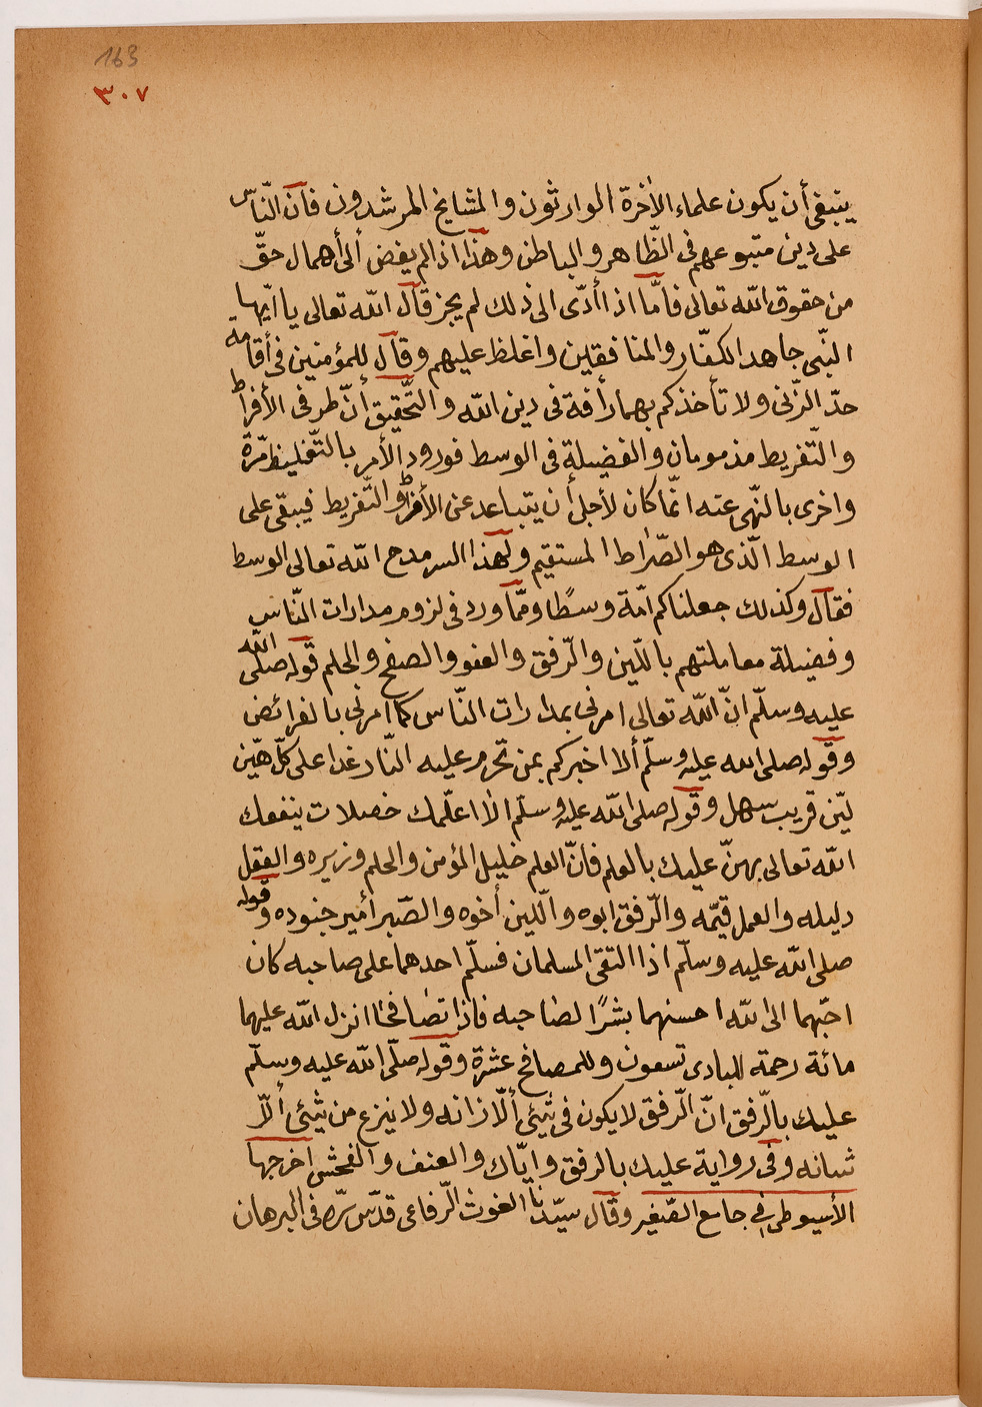 163
٣٠٧
ينبغى أن يكون علماء الأخرة الوارثون والمشايخ المرشدون فآن النّاس
على دين متبوعهم فى الظّاهر والباطن وهذا اذا لم يفض ألى أهمال حقّ
من حقوق الله تعالى فامّا اذا أدّى الى ذلك لم يجز قآل الله تعالى يا ايّها
النّبى جاهد الكفّار والمنافقين واغلظ عليهم وقآل للمؤمنين فى أقامة
حدّ الزّنى ولا تأخذكم بهما رأفة فى دين الله والتّحقيق أنّ طرفى الأفراط
والتّفريط مذمومان والفضيلة فى الوسط فورود الأمر بالتّغليظ مّرة
واخرى بالنّهى عنه انّما كان لأجل أن يتباعد عن الأفراط والتّفريط فيبقى على
الوسط الّذى هو الصّراط المستقيم ولهذا السر مدح الله تعالى الوسط
فقآل وكذلك جعلناكم امّة وسطًا وممّا ورد فى لزوم مدارات النّاس
وفضيلة معاملتهم باللّين والرّفق والعفو والصفح والحلم قوله صلّى الله
عليه وسلّم انّ الله تعالى امرنى بمدارات النّاس كما امرنى بالفرائض
وقوله صلى الله عليه وسلّم ألا اخبركم بمن تحرم عليه النّار غدا على كلّ هيّن
ليّن قريب سهل وقوله صلى الله عليه وسلّم الا اعلّمك خصلات ينفعك
الله تعالى بهنّ عليك بالعلم فانّ العلم خليل المؤمن والحلم وزيره والعقل
دليله والعمل قيّمه والرّفق ابوه واللّين أخوه والصّبر أمير جنوده وقوله
صلى الله عليه وسلّم اذا التقى المسلمان فسلّم احدهما على صاحبه كان
احبّهما الى الله احسنهما بشرًا لصاحبه فاذا تصافحا انزل الله عليهما
مائة رحمة للبادى تسعون وللمصافح عشرة وقوله صلّى الله عليه وسلّم
عليك بالّرفق انّ الّرفق لا يكون فى شيئ ألّا زانه ولا ينزع من شيئ ألّا
شانه وفى رواية عليك بالرفق وايّاك والعنف والفحش اخرجها
الأسيوطى فى جامع الصّغير وقآل سيّدنا الغوث الّرفاعى قدّس سرّه فى البرهان